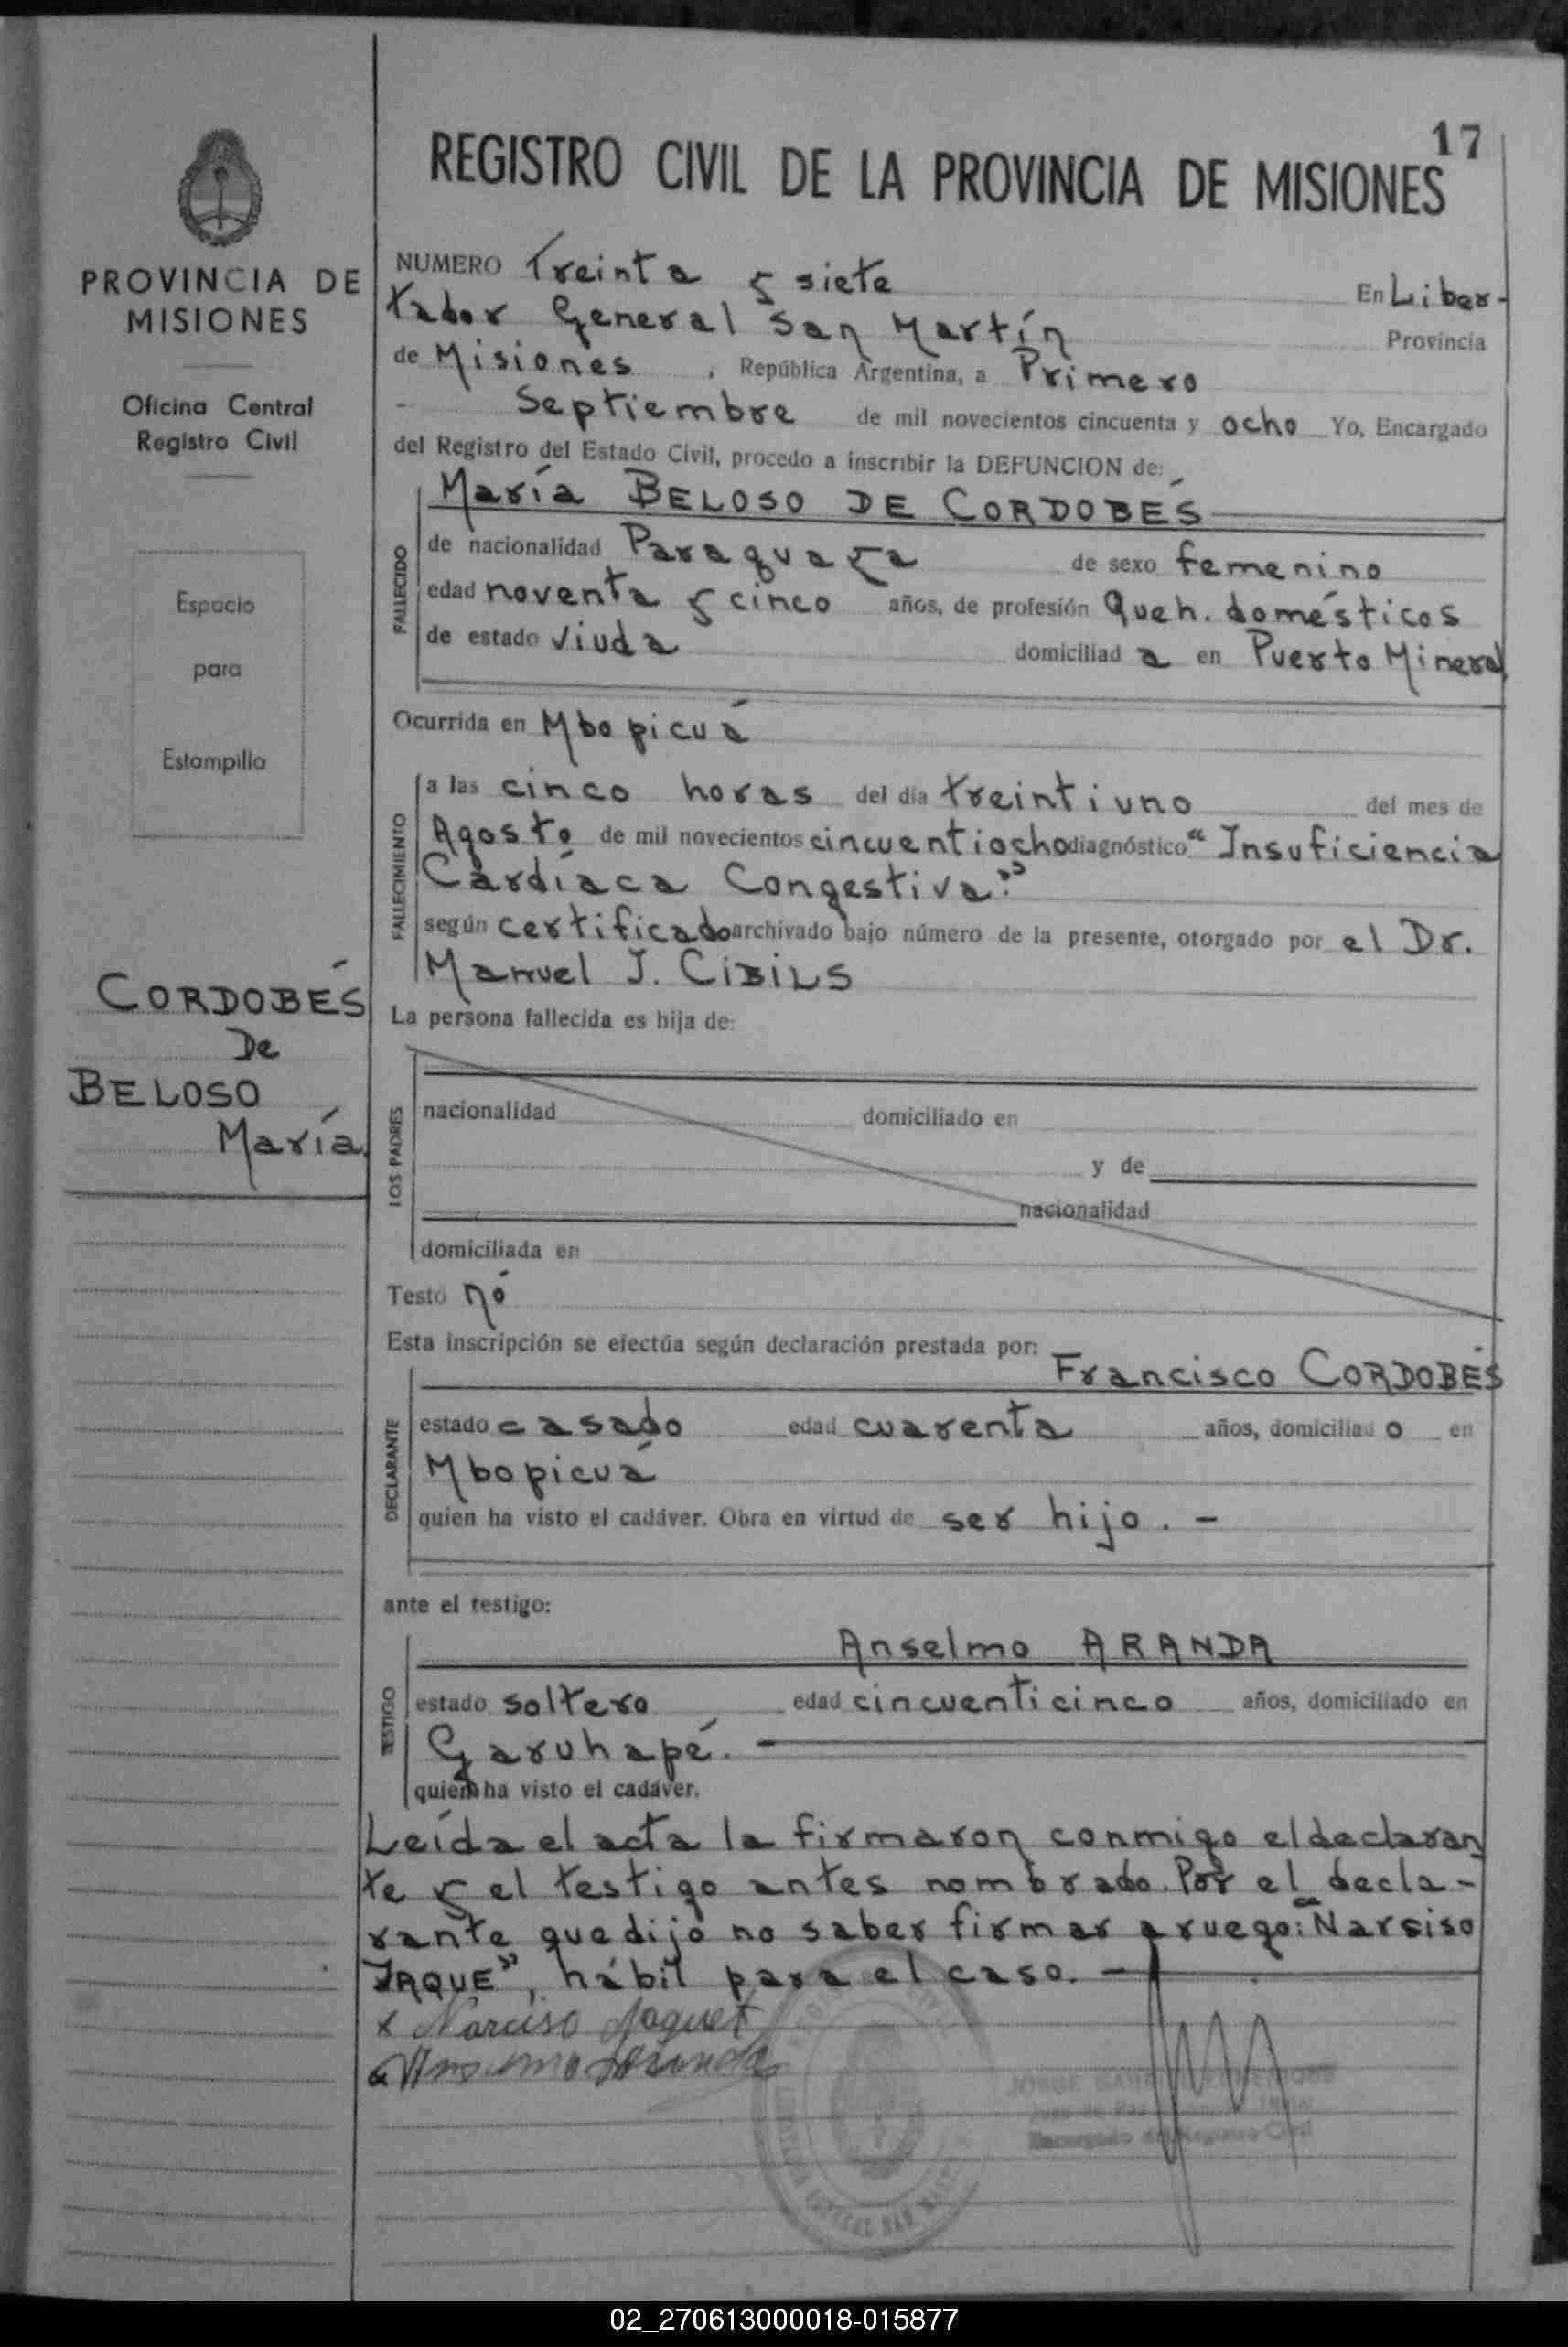 17
REGISTRO CIVIL DE LA PROVINCIA DE MISIONES
PROVINCIA DE
MISIONES
Oficina Central
Registro Civil
Espacio
para
Estampilla
CORDOBÉS
De
BELOSO
María.
NUMERO Treinta y siete En Liber-
tador General San Martín Provincia
de Misiones , República Argentina, a Primero
- Septiembre de mil novecientos cincuenta y ocho Yo, Encargado
del Registro del Estado Civil, procedo a inscribir la DEFUNCION de:
María BELOSO DE CORDOBÉS
FALLECIDO
de nacionalidad Paraguaya de sexo femenino
edad noventa y cinco años, de profesión Queh. domésticos
de estado viuda domiciliad a en Puerto Mineral
Ocurrida en Mbopicuá
FALLECIMIENTO
a las cinco horas del día treintiuno del mes de
Agosto de mil novecientos cincuentiocho diagnóstico "Insuficiencia
Cardíaca Congestiva."
según certificado archivado bajo número de la presente, otorgado por el Dr.
Manuel J. CIBILS
La persona fallecida es hija de:
LOS PADRES
nacionalidad domiciliado en
y de
nacionalidad
domiciliada en
Testó nó
Esta inscripción se efectúa según declaración prestada por:
Francisco CORDOBÉS
DECLARANTE
estado casado edad cuarenta años, domiciliad o en
Mbopicuá
quien ha visto el cadáver. Obra en virtud de ser hijo. -
ante el testigo:
Anselmo ARANDA
TESTIGO
estado soltero edad cincuenticinco años, domiciliado en
Garuhapé. -
quien ha visto el cadáver.
Leída el acta la firmaron conmigo el declaran
te y el testigo antes nombrado. Por el decla-
rante que dijo no saber firmar a ruego: "Narsiso
JAQUE", hábil para el caso. -
x Narciso Jaquet
Encargado del Registro Civil
GENERAL SAN
02_270613000018-015877